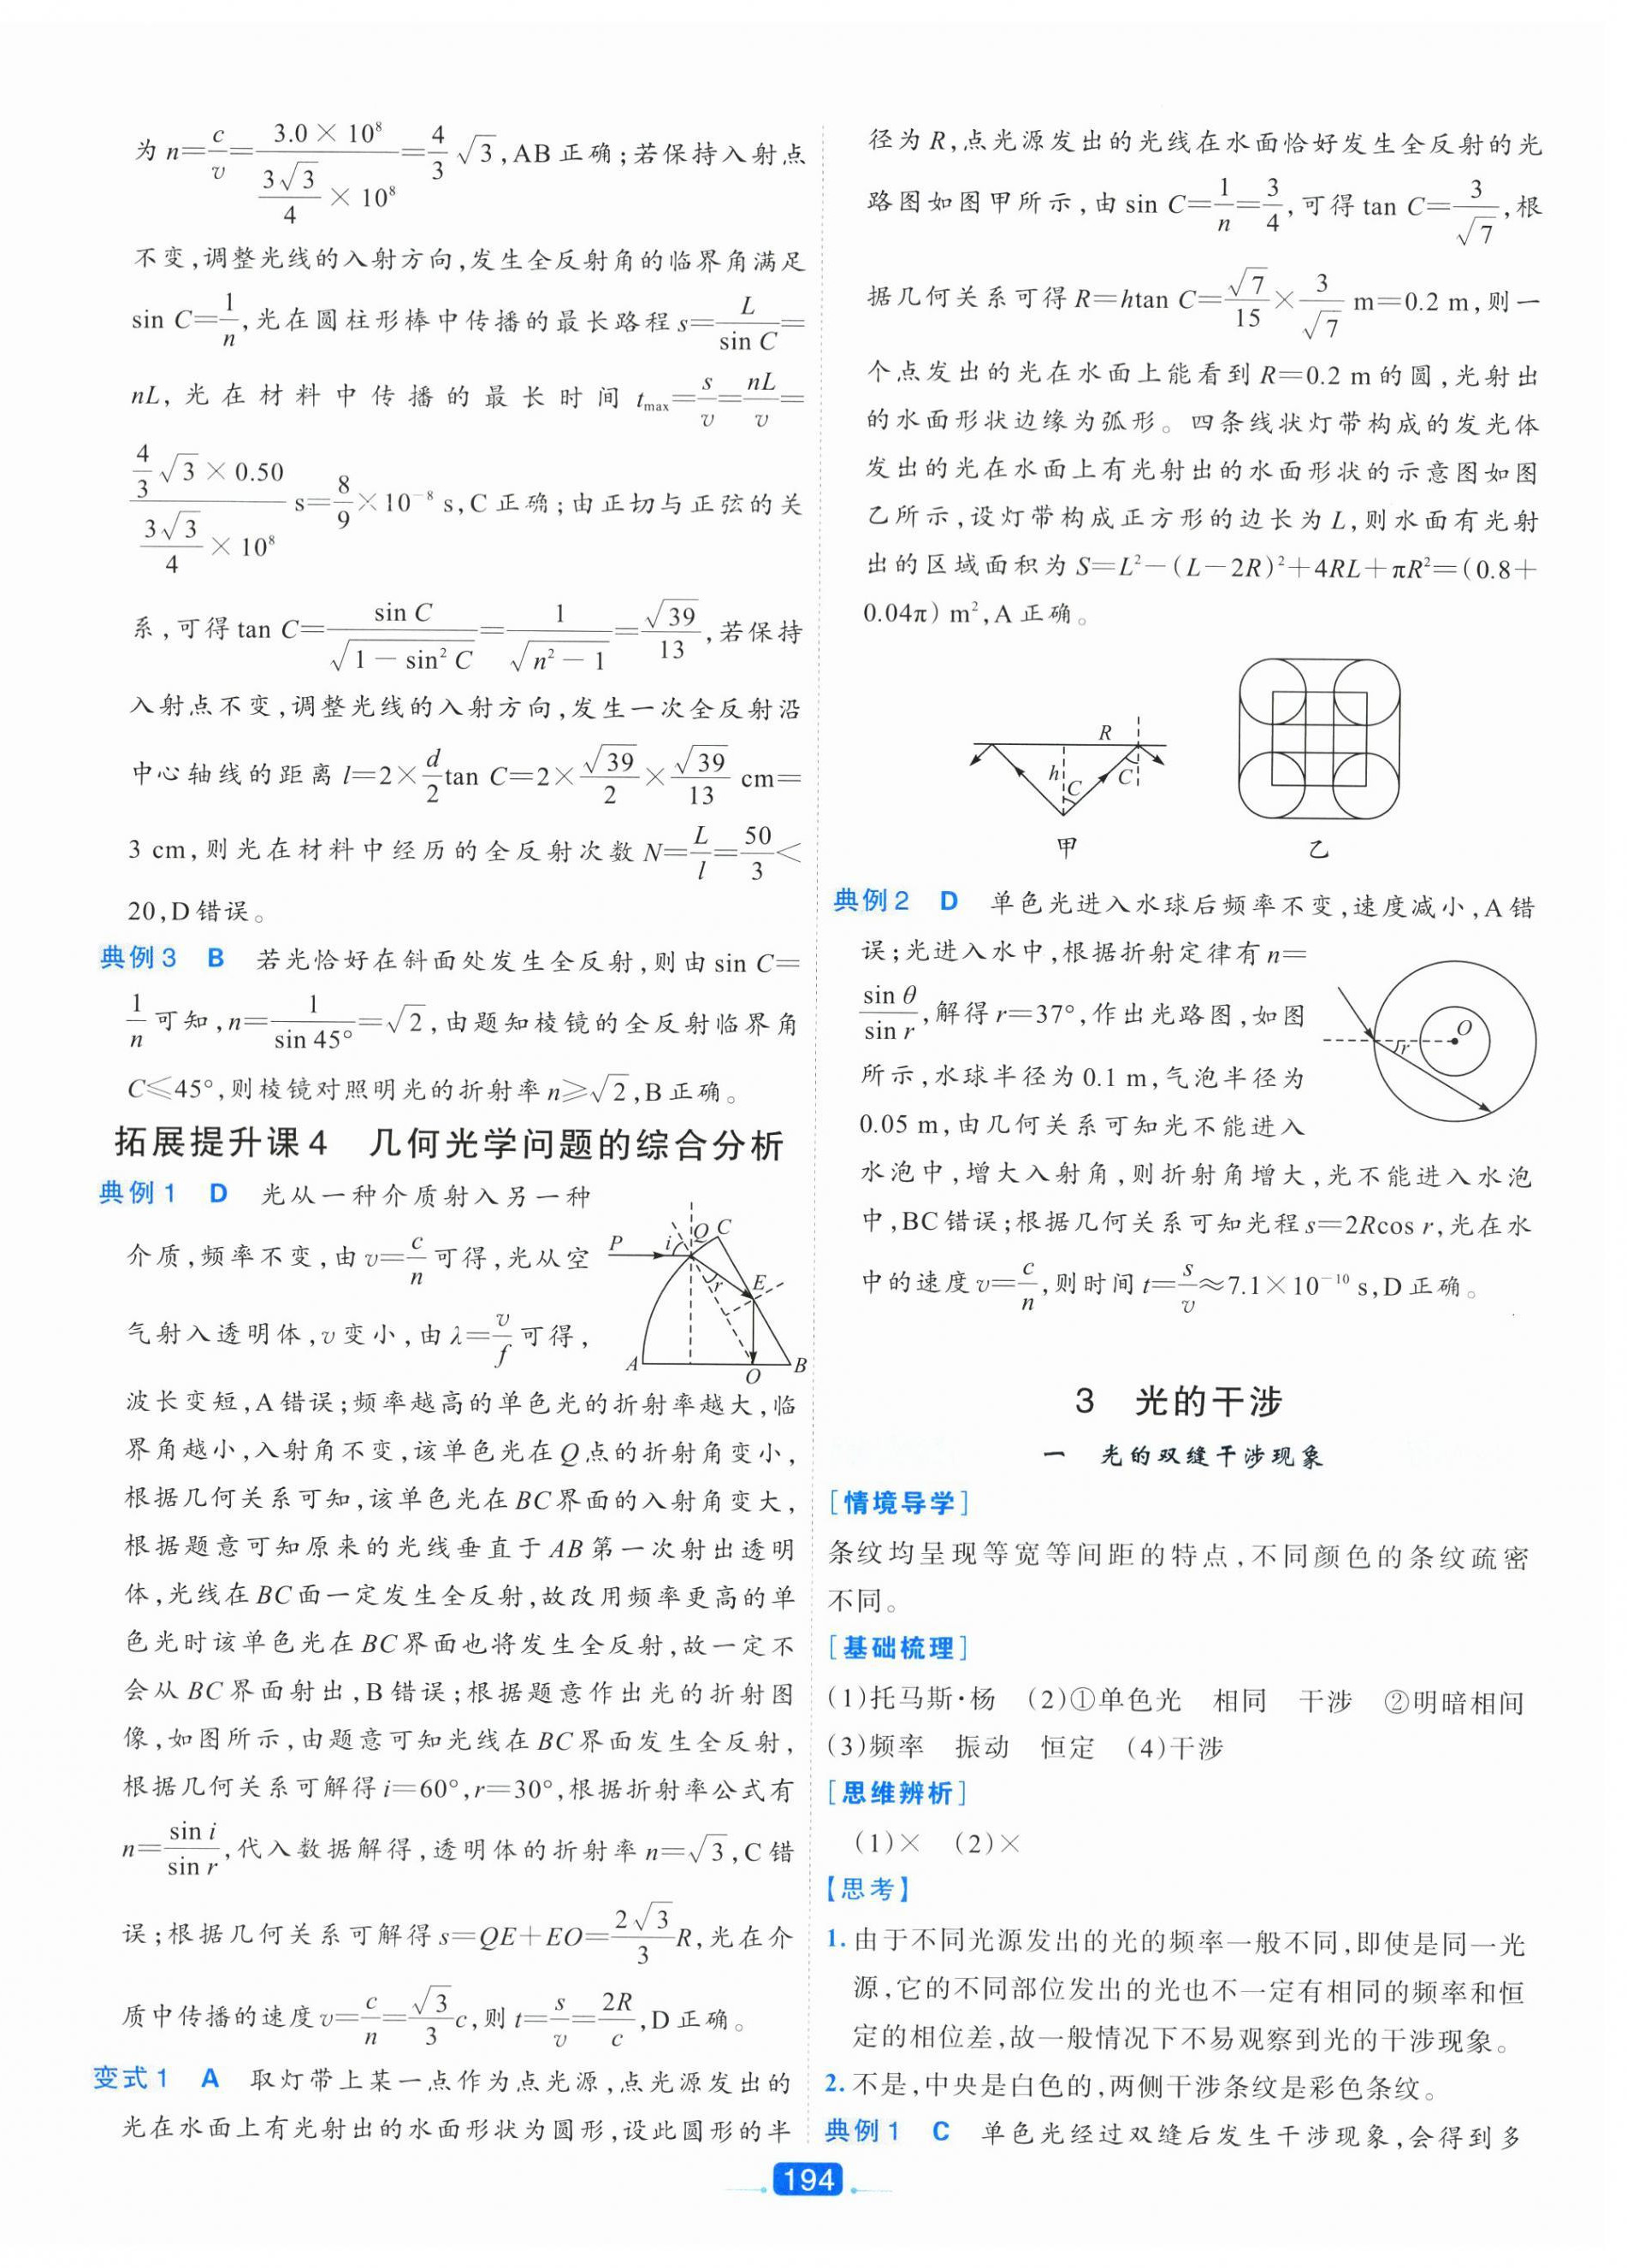 为 n=c/v=3.0×10⁸/(3√3/4×10⁸)=4/3√3,AB正确;若保持入射点
不变,调整光线的入射方向,发生全反射角的临界角满足
sin C=1/n,光在圆柱形棒中传播的最长路程s=L/sin C=
nL,光在材料中传播的最长时间 tmax=s/v=nL/v=
(4/3√3×0.50)/(3√3/4×10⁸) s=8/9×10⁻⁸ s,C正确;由正切与正弦的关
系,可得tan C=sin C/√(1-sin² C)=1/√(n²-1)=√39/13,若保持
入射点不变,调整光线的入射方向,发生一次全反射沿
中心轴线的距离l=2×d/2 tan C=2×√39/2×√39/13 cm=
3 cm,则光在材料中经历的全反射次数N=L/l=50/3<
20,D错误。
典例3 B 若光恰好在斜面处发生全反射,则由sin C=
1/n可知,n=1/sin 45°=√2,由题知棱镜的全反射临界角
C≤45°,则棱镜对照明光的折射率n≥√2,B正确。
拓展提升课4 几何光学问题的综合分析
典例1 D 光从一种介质射入另一种
介质,频率不变,由v=c/n可得,光从空
气射入透明体,v变小,由λ=v/f可得,
P i Q C r E A O B
波长变短,A错误;频率越高的单色光的折射率越大,临
界角越小,入射角不变,该单色光在Q点的折射角变小,
根据几何关系可知,该单色光在BC界面的入射角变大,
根据题意可知原来的光线垂直于AB第一次射出透明
体,光线在BC面一定发生全反射,故改用频率更高的单
色光时该单色光在BC界面也将发生全反射,故一定不
会从BC界面射出,B错误;根据题意作出光的折射图
像,如图所示,由题意可知光线在BC界面发生全反射,
根据几何关系可解得i=60°,r=30°,根据折射率公式有
n=sin i/sin r,代入数据解得,透明体的折射率n=√3,C错
误;根据几何关系可解得s=QE+EO=2√3/3 R,光在介
质中传播的速度v=c/n=√3/3 c,则t=s/v=2R/c,D正确。
变式1 A 取灯带上某一点作为点光源,点光源发出的
光在水面上有光射出的水面形状为圆形,设此圆形的半
径为R,点光源发出的光线在水面恰好发生全反射的光
路图如图甲所示,由sin C=1/n=3/4,可得tan C=3/√7,根
据几何关系可得R=htan C=√7/15×3/√7 m=0.2 m,则一
个点发出的光在水面上能看到R=0.2 m的圆,光射出
的水面形状边缘为弧形。四条线状灯带构成的发光体
发出的光在水面上有光射出的水面形状的示意图如图
乙所示,设灯带构成正方形的边长为L,则水面有光射
出的区域面积为S=L²-(L-2R)²+4RL+πR²=(0.8+
0.04π) m²,A正确。
R h C C
甲 乙
典例2 D 单色光进入水球后频率不变,速度减小,A错
误;光进入水中,根据折射定律有n=
sin θ/sin r,解得r=37°,作出光路图,如图
所示,水球半径为0.1 m,气泡半径为
0.05 m,由几何关系可知光不能进入
O r
水泡中,增大入射角,则折射角增大,光不能进入水泡
中,BC错误;根据几何关系可知光程s=2Rcos r,光在水
中的速度v=c/n,则时间t=s/v≈7.1×10⁻¹⁰ s,D正确。
3 光的干涉
一 光的双缝干涉现象
[情境导学]
条纹均呈现等宽等间距的特点,不同颜色的条纹疏密
不同。
[基础梳理]
(1)托马斯·杨 (2)①单色光 相同 干涉 ②明暗相间
(3)频率 振动 恒定 (4)干涉
[思维辨析]
(1)× (2)×
【思考】
1.由于不同光源发出的光的频率一般不同,即使是同一光
源,它的不同部位发出的光也不一定有相同的频率和恒
定的相位差,故一般情况下不易观察到光的干涉现象。
2.不是,中央是白色的,两侧干涉条纹是彩色条纹。
典例1 C 单色光经过双缝后发生干涉现象,会得到多
194